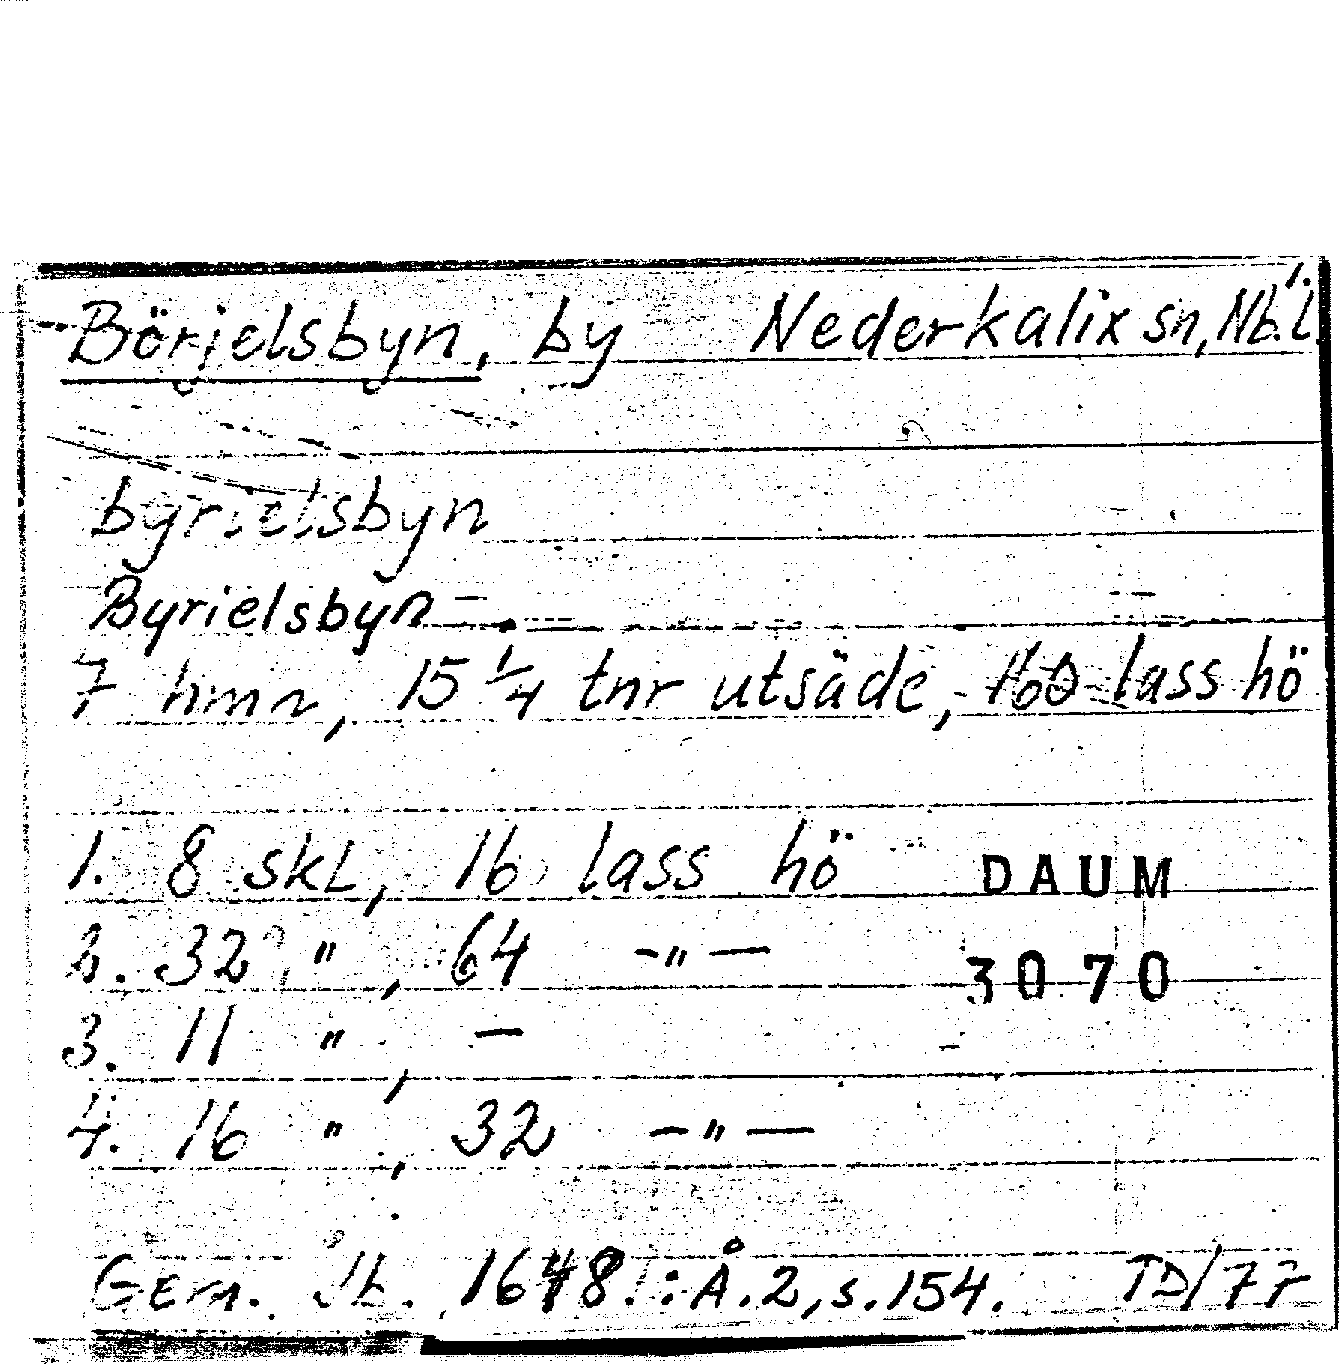 Börjelsbyn, by Nederkalix sn, Nb.l.
byrielsbyn
Byrielsbÿn
7 hmn, 15 1/4 tnr utsäde, 160 lass hö
1. 8 skl, 16 lass hö DAUM
2. 32 " , 64 -"-
3070
3. 11 " , -
4. 16 " , 32 -"-
Gem. Jb. 1648.:Å.2, s.154. TD/77